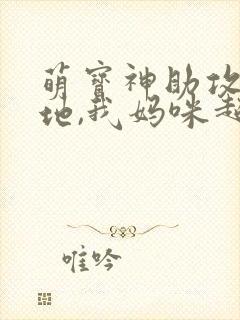 萌宝神助攻
地,我妈咪超
唯吟